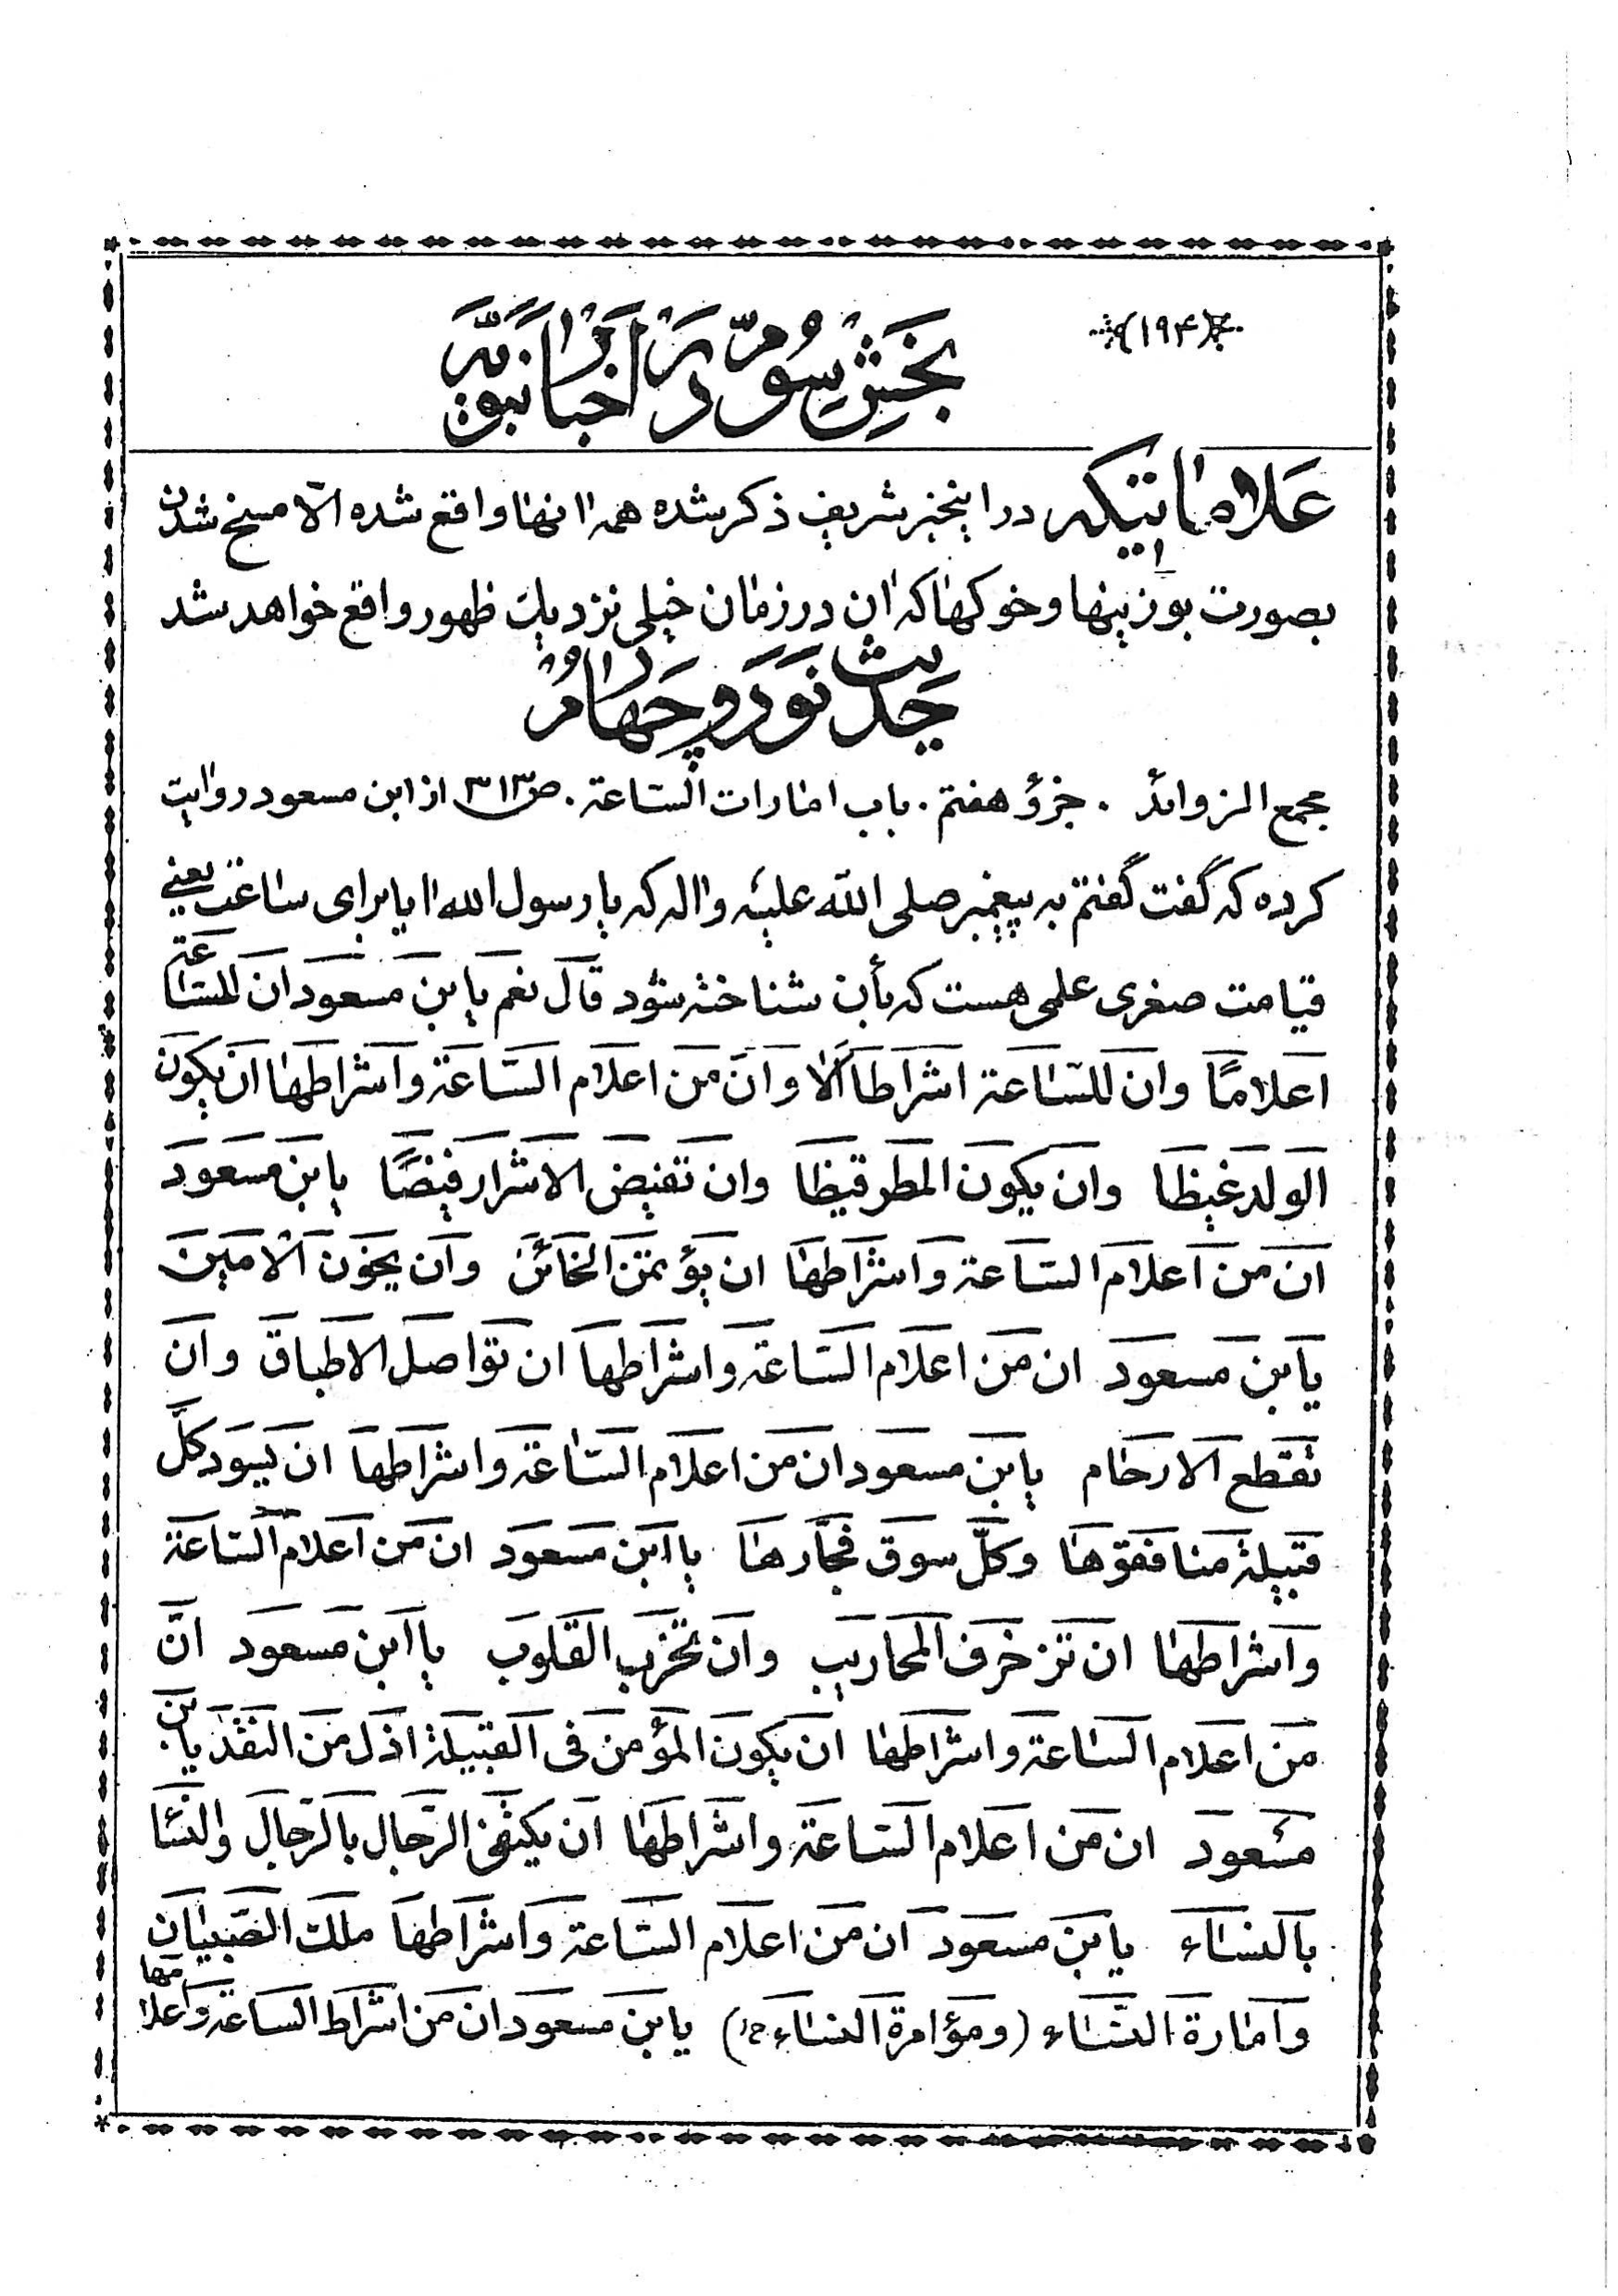 (۱۹۴)
بخش سوم در اخبار نبویه
علاماتیکه در اینخبر شریف ذکر شده همه انها واقع شده الا مسخ شدن
بصورت بوزینها و خوکها که ان در زمان خیلی نزدیک ظهور واقع خواهد شد
حدیث نود و چهارم
مجمع الزوائد . جزؤ هفتم . باب امارات الساعة . ص۳۱۳ از ابن مسعود روایت
کرده که گفت گفتم به پیغمبر صلی الله علیه واله که یا رسول الله ایا برای ساعت یعنی
قیامت صغری علمی هست که بأن شناخته شود قال نعم یابن مسعود ان للساعة
اعلامًا وان للساعة اشراطا ألا وان من اعلام الساعة واشراطها ان یکون
الولد غیظا وان یکون المطر قیظا وان تفیض الاشرار فیضًا یابن مسعود
ان من اعلام الساعة واشراطها ان یؤتمن الخائن وان یخون الامین
یابن مسعود ان من اعلام الساعة واشراطها ان تواصل الاطباق وان
تقطع الارحام یابن مسعود ان من اعلام الساعة واشراطها ان یسود کل
قبیلة منافقوها وکل سوق فجارها یا ابن مسعود ان من اعلام الساعة
واشراطها ان تزخرف المحاریب وان تخرب القلوب یا ابن مسعود انّ
من اعلام الساعة واشراطها ان یکون المؤمن فی القبیلة اذل من النقد یابن
مسعود ان من اعلام الساعة واشراطها ان یکتفی الرجال بالرجال والنساء
بالنساء یابن مسعود ان من اعلام الساعة واشراطها ملک الصبیان
وامارة النساء (ومؤامرة النساء) یابن مسعود ان من اشراط الساعة واعلامها